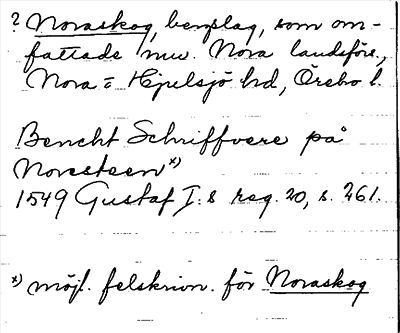 ? Noraskog, bergslag, som om-
fattade nuv. Nora landsförs.,
Nora o Hjulsjö hd, Örebro l.
Bencht Schriffvere på
Noresteen x)
1549 Gustaf I:s reg. 20, s. 261.
x) möjl. felskrivn. för Noraskog